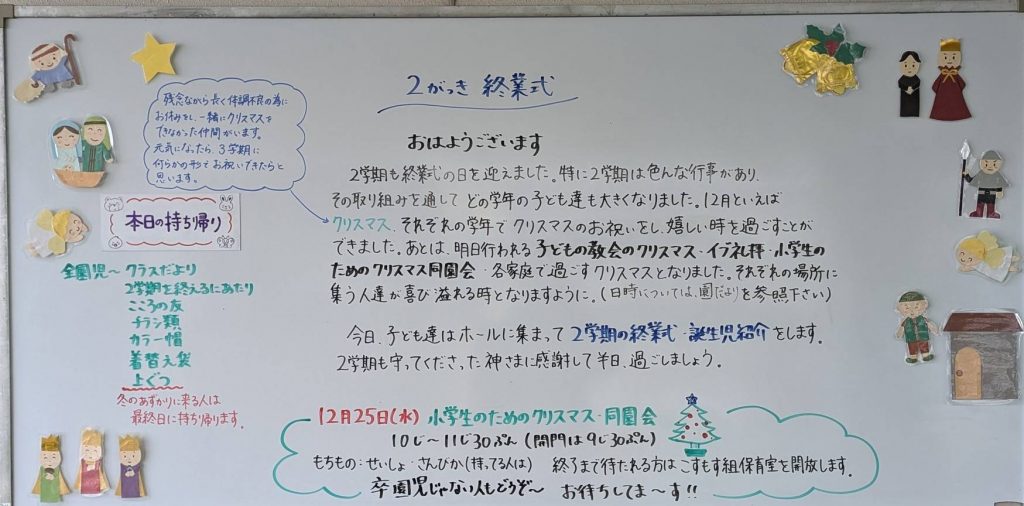 2がっき 終業式
残念ながら長く体調不良の為に
お休みをし、一緒にクリスマスを
できなかった仲間がいます。
元気になったら、3学期に
何らかの形でお祝いできたらと
思います。
おはようございます
2学期も終業式の日を迎えました。特に2学期は色んな行事があり、
その取り組みを通して どの学年の子ども達も大きくなりました。12月といえば
クリスマス、それぞれの学年でクリスマスのお祝いをし、嬉しい時を過ごすことが
できました。あとは、明日行われる子どもの教会のクリスマス・イブ礼拝・小学生の
ためのクリスマス同園会・各家庭で過ごすクリスマスとなりました。それぞれの場所に
集う人達が喜び溢れる時となりますように。(日時については、園だよりを参照下さい)
今日、子ども達はホールに集まって 2学期の終業式・誕生児紹介をします。
2学期も守ってくださった神さまに感謝して半日、過ごしましょう。
本日の持ち帰り
全園児〜 クラスだより
2学期を終えるにあたり
こころの友
チラシ類
カラー帽
着替え袋
上ぐつ
冬のあずかりに来る人は
最終日に持ち帰ります。
12月25日(水) 小学生のためのクリスマス・同園会
10じ〜11じ30ぷん (開門は9じ30ぷん)
もちもの:せいしょ・さんびか(持ってる人は) 終了まで待たれる方は こすもす組保育室を開放します。
卒園児じゃない人もどうぞ〜 お待ちしてま〜す!!